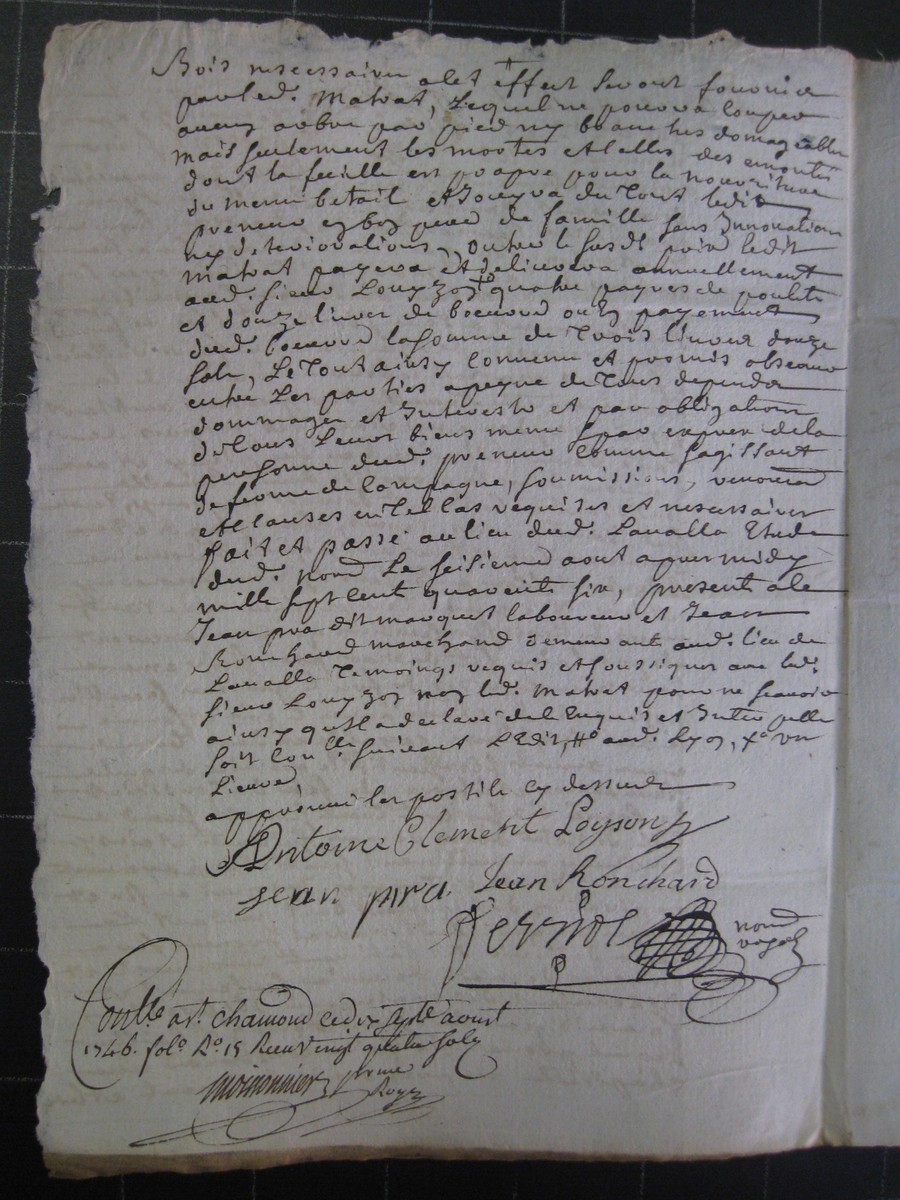 Bois necessaires a cet effect seront fournice
par led. Matrat, Lequel ne pourra couper
aucun arbre par pied ny branches domageables
mais seulement les mortes et celles des emontés
dont la feuille est propre pour la nourriture
du menu betail et Jouyra du Tout ledit
preneur en bon pere de famille sans Innovations
ny deteriorations, outre le susd. prix ledit
Matrat payera et delivrera annuellement
aud. sieur Louyzon quatre payres de poulets
et douze livres de beeurre ou en payement
dud. beeurre la somme de Trois livres douze
sols, Le Tout ainsy convenu et promis observer
entre Les parties a peyne de Tous depends
dommages et Interests et par obligations
de Tous Leurs biens meme par corps de la
personne dud. preneur comme sagissant
de ferme de Campagne, soumissions, renonciad
et Clauses en Tel Cas requises et necessaires
fait et passé au lieu dud. Lavalla Etude
dud. nore Le seisieme aout apres midy
mille sept cent quarente six, presents a ce
Jean pra dit marquet laboureur et Jean
Ronchard marchand demeurants aud. lieu de
Lavalla Temoings requis et soussignes avec led.
sieur Louyzon non led. Matrat pour ne scavoir
ainsy quil a declaré de ce Enquis et Interpellé
soit Conlle suivant L'Edit,
Lieure
approuvé les postile cy dessus
Antoine Clement Loyson
Jean pra Jean Ronchard
nore
royal
Conllé a st. chamond ce dix septe aoust
1746. folo Ro 15 Receu vingt quatre sols